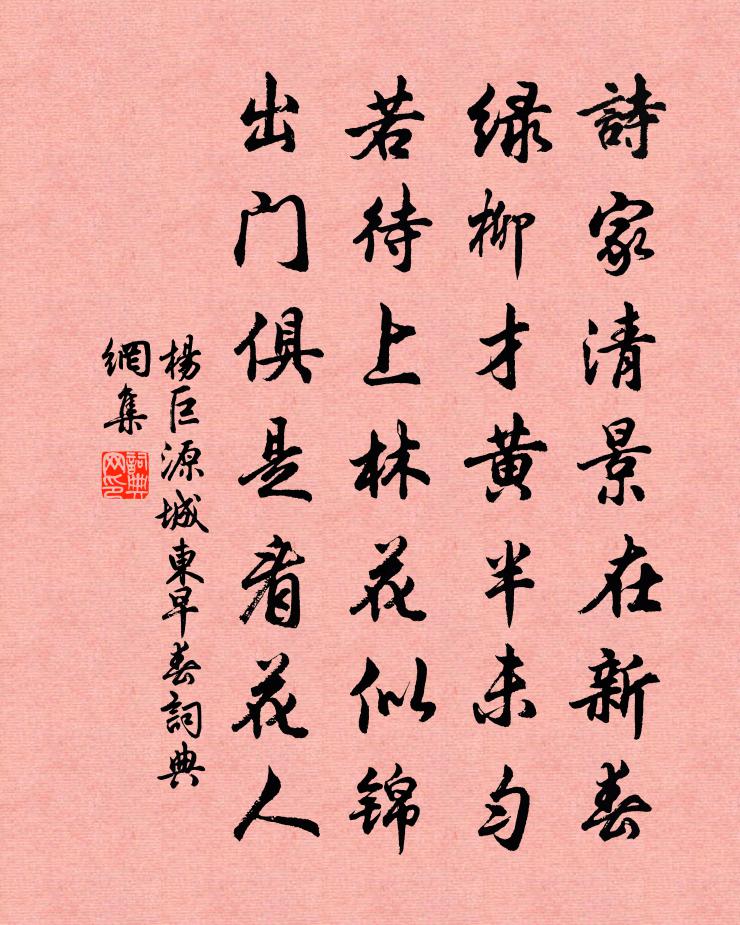 詩家清景在新春
緑柳才黄半未匀
若待上林花似锦
出门俱是看花人
楊巨源城東早春詞典
網集
詞典
网印